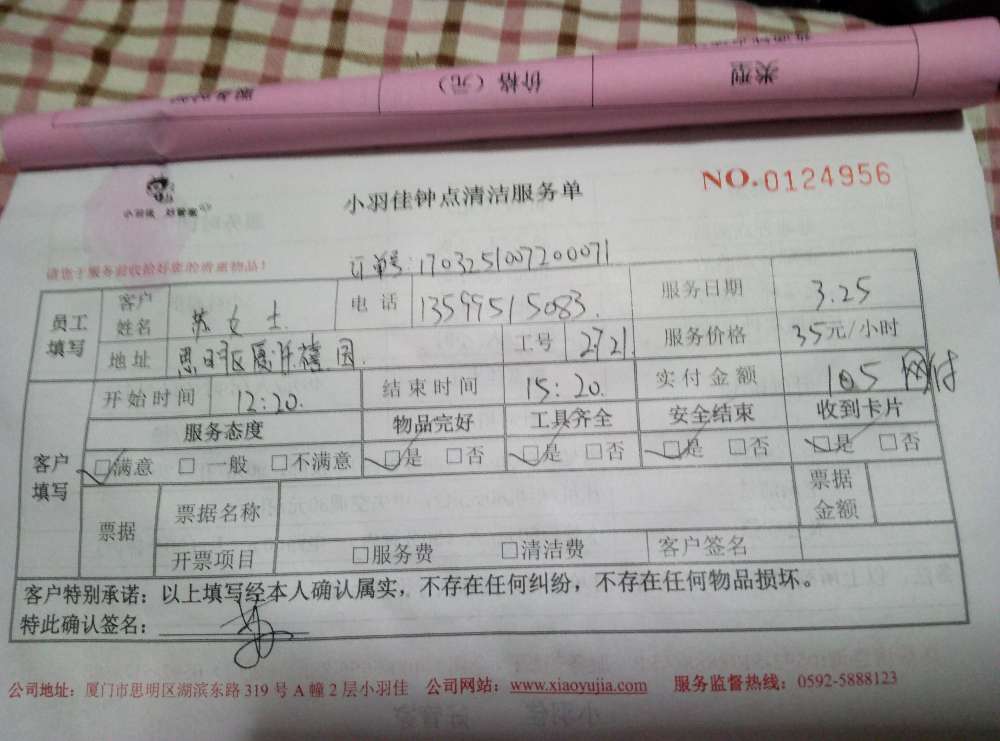 服务 价格（元） 类型
小羽佳
小羽佳钟点清洁服务单
NO.0124956
请您于服务前收拾好您的贵重物品！
订单号:1703251007200071
员工填写 客户姓名 苏女士 电话 13599515083 服务日期 3.25
地址 思明区 园 工号 2721 服务价格 35元/小时
客户填写 开始时间 12:20. 结束时间 15:20. 实付金额 105 网付
服务态度 物品完好 工具齐全 安全结束 收到卡片
☑满意 □一般 □不满意 ☑是 □否 ☑是 □否 ☑是 □否 ☑是 □否
票据 票据名称 票据金额
开票项目 □服务费 □清洁费 客户签名
客户特别承诺：以上填写经本人确认属实，不存在任何纠纷，不存在任何物品损坏。
特此确认签名： 苏
公司地址：厦门市思明区湖滨东路319号A幢2层小羽佳 公司网站：www.xiaoyujia.com 服务监督热线：0592-5888123